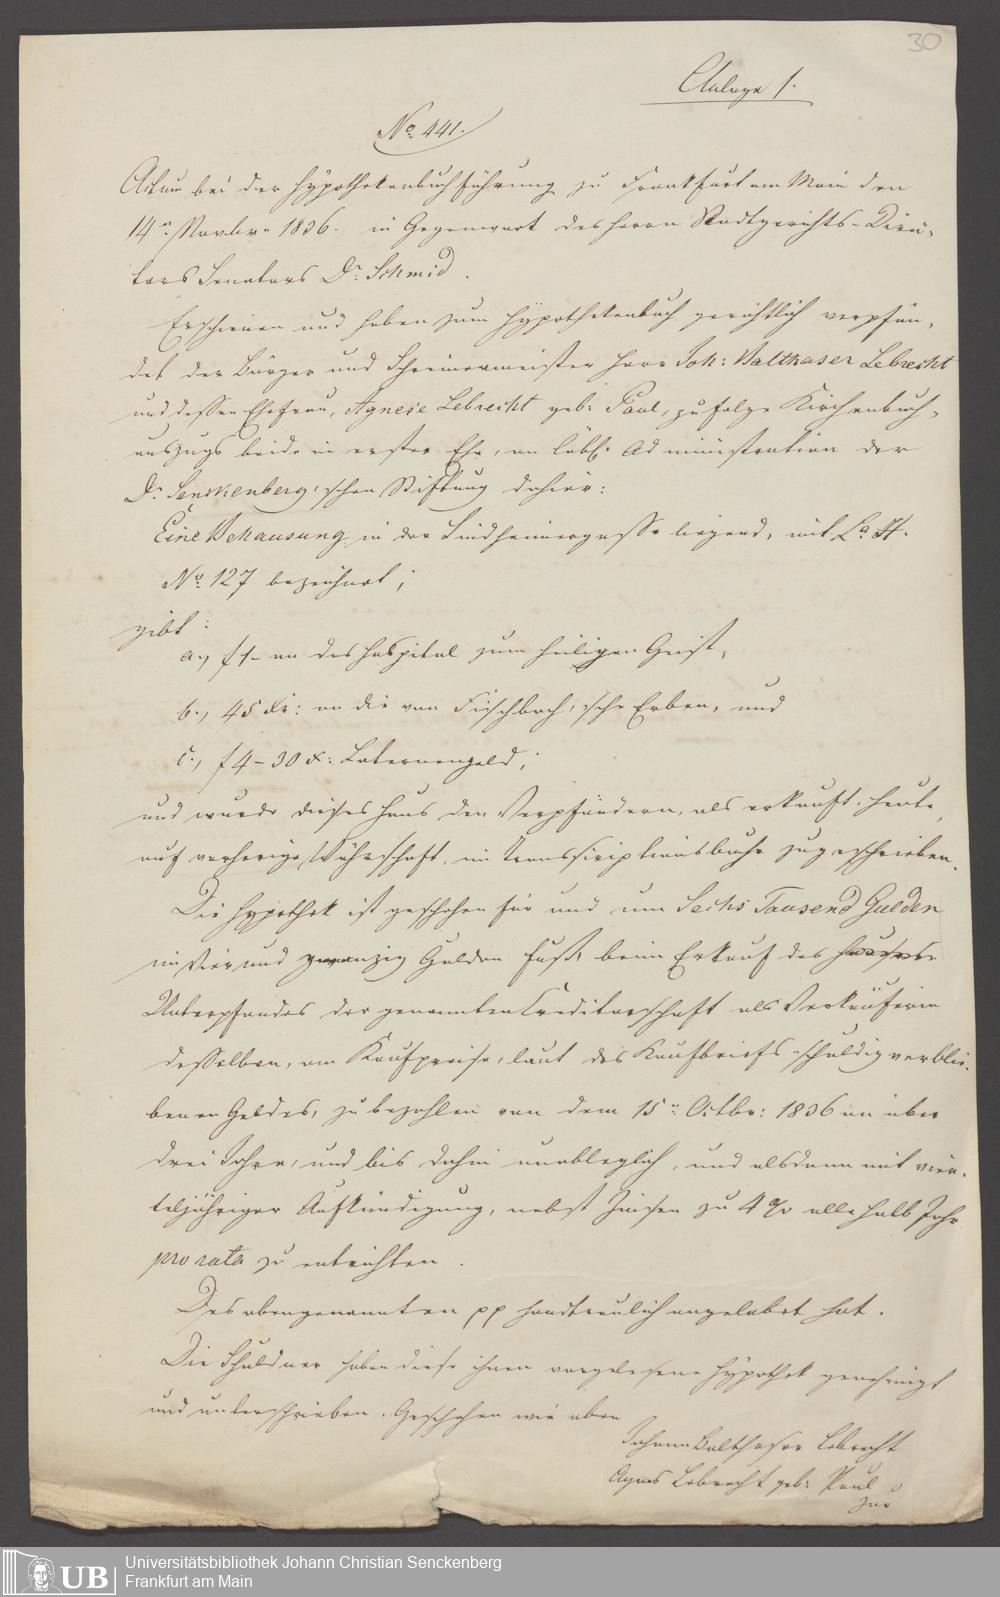 30
Anlage 1.
No. 441.
Actum bei der Hypothekenbuchführung zu Frankfurt am Main den
14n. Novbr. 1836. in Gegenwart des Herrn Stadtgerichts-Direc-
tors Senators Dr. Schmid.
Erschienen und haben zum Hypothekenbuch gerichtlich verpfän-
det der Bürger und Schreinermeister Herr Joh: Balthaser Lebrecht
und dessen Ehefrau, Agnese Lebrecht geb: Paul, zu folge Kirchenbuch-
auszugs beide in erster Ehe, an löbl. Administration der
Dr. Senckenberg'schen Stiftung dahier:
Eine Behausung in der Lindheimergasse liegend, mit La. H.
No. 127 bezeichnet;
gibt:
a., f 1 - an das Hospital zum heiligen Geist,
b., 45 Xr: an die von Fischbach'sche Erben, und
c., f 4 - 30 x: Laternengeld;
und wurde dieses Haus den Verpfändern, als erkauft, heute,
auf vorherige Währschaft, im Transscriptionsbuche zugeschrieben.
Die Hypothek ist geschehen für und um Sechs Tausend Gulden
im Vier und zwanzig Gulden Fuß, beim Erkauf des Hauses
Unterpfandes der genannten Creditorschaft als Verkäuferin
desselben, am Kaufpreise, laut des Kaufbriefs schuldig verblie-
benen Geldes, zu bezahlen von dem 15n. Octbr: 1836 an über
drei Jahre, und bis dahin unableglich, und alsdann mit vier-
teljähriger Aufkündigung, nebst Zinsen zu 4 % alle halb Jahr
pro rata zu entrichten.
Das obengenannten pp handtreulich angelobt hat.
Die Schuldner haben diese ihnen vorgelesene Hypothek genehmigt
und unterschrieben. Geschehen wie oben
Johann Balthasar Lebrecht
Agnes Lebrecht geb: Paul
Zur
UB
Universitätsbibliothek Johann Christian Senckenberg
Frankfurt am Main